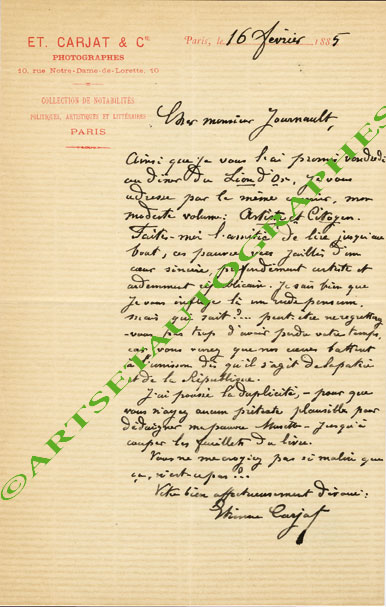 ET. CARJAT & Cie
PHOTOGRAPHES
10, rue Notre-Dame-de-Lorette, 10
COLLECTION DE NOTABILITÉS
POLITIQUES, ARTISTIQUES ET LITTÉRAIRES
PARIS
Paris, le 16 février 1885
Cher monsieur Journault,
Ainsi que je vous l'ai promis, vendredi
au dîner du Lion d'Or, je vous
adresse par le même courrier, mon
modeste volume: Artiste et Citoyen.
Faites-moi l'amitié de lire jusqu'au
bout, ces pauvres vers jaillis d'un
cœur sincère, profondément artiste et
ardemment républicain. Je sais bien que
je vous inflige là un rude pensum,
mais qui sait?... peut-être ne regretterez
-vous pas trop d'avoir perdu votre temps,
car vous verrez que nos cœurs battent
à l'unisson dès qu'il s'agit de la patrie
et de la République.
J'ai poussé la duplicité, - pour que
vous n'ayez aucun prétexte plausible pour
dédaigner ma pauvre Musette - jusqu'à
couper les feuillets du livre.
Vous ne me croyiez pas si malin que
ça, n'est-ce pas?...
Votre bien affectueusement dévoué:
Etienne Carjat
©ARTSETAUTOGRAPHES